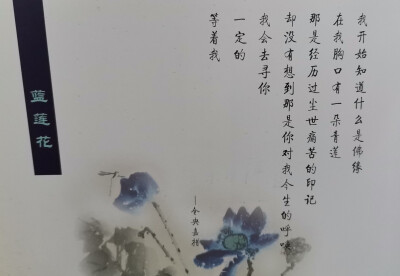 我开始知道什么是佛缘
在我胸口有一朵青莲
那是经历过尘世痛苦的印记
却没有想到那是你对我今生的呼唤
我会去寻你
一定的
等着我
——仓央嘉措
蓝莲花